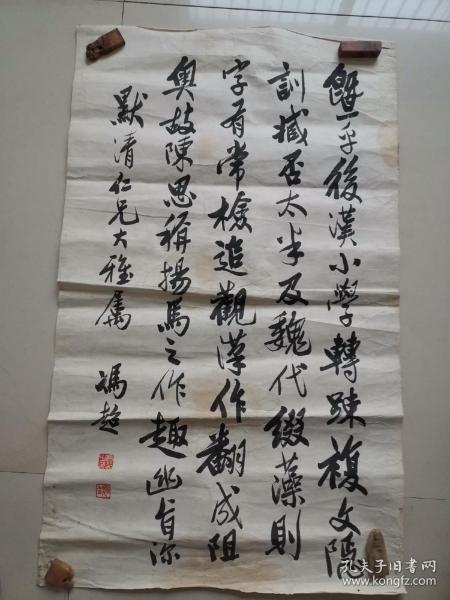 暨乎後漢小學轉疎複文隱
訓臧否太半及魏代綴藻則
字有常檢追觀漢作翻成阻
奥故陳思稱揚馬之作趣幽旨深
默清仁兄大雅属 馮超
孔夫子旧书网
www.kongfz.com